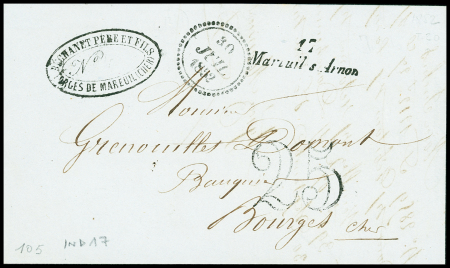 PERE ET FILS
No
FORGES DE MAREUIL (CHER)
30
JUIL
1852
17
Mareuil-s-Arnon
Monsieur
Grenouillet
Banquier
25
Bourges
cher
105
IND 17